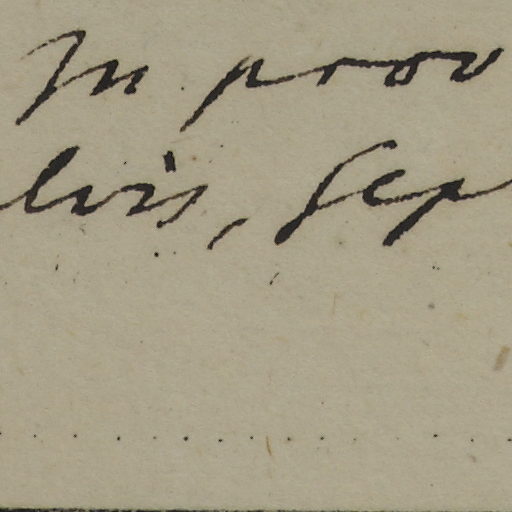 In prov
lvis, Sep